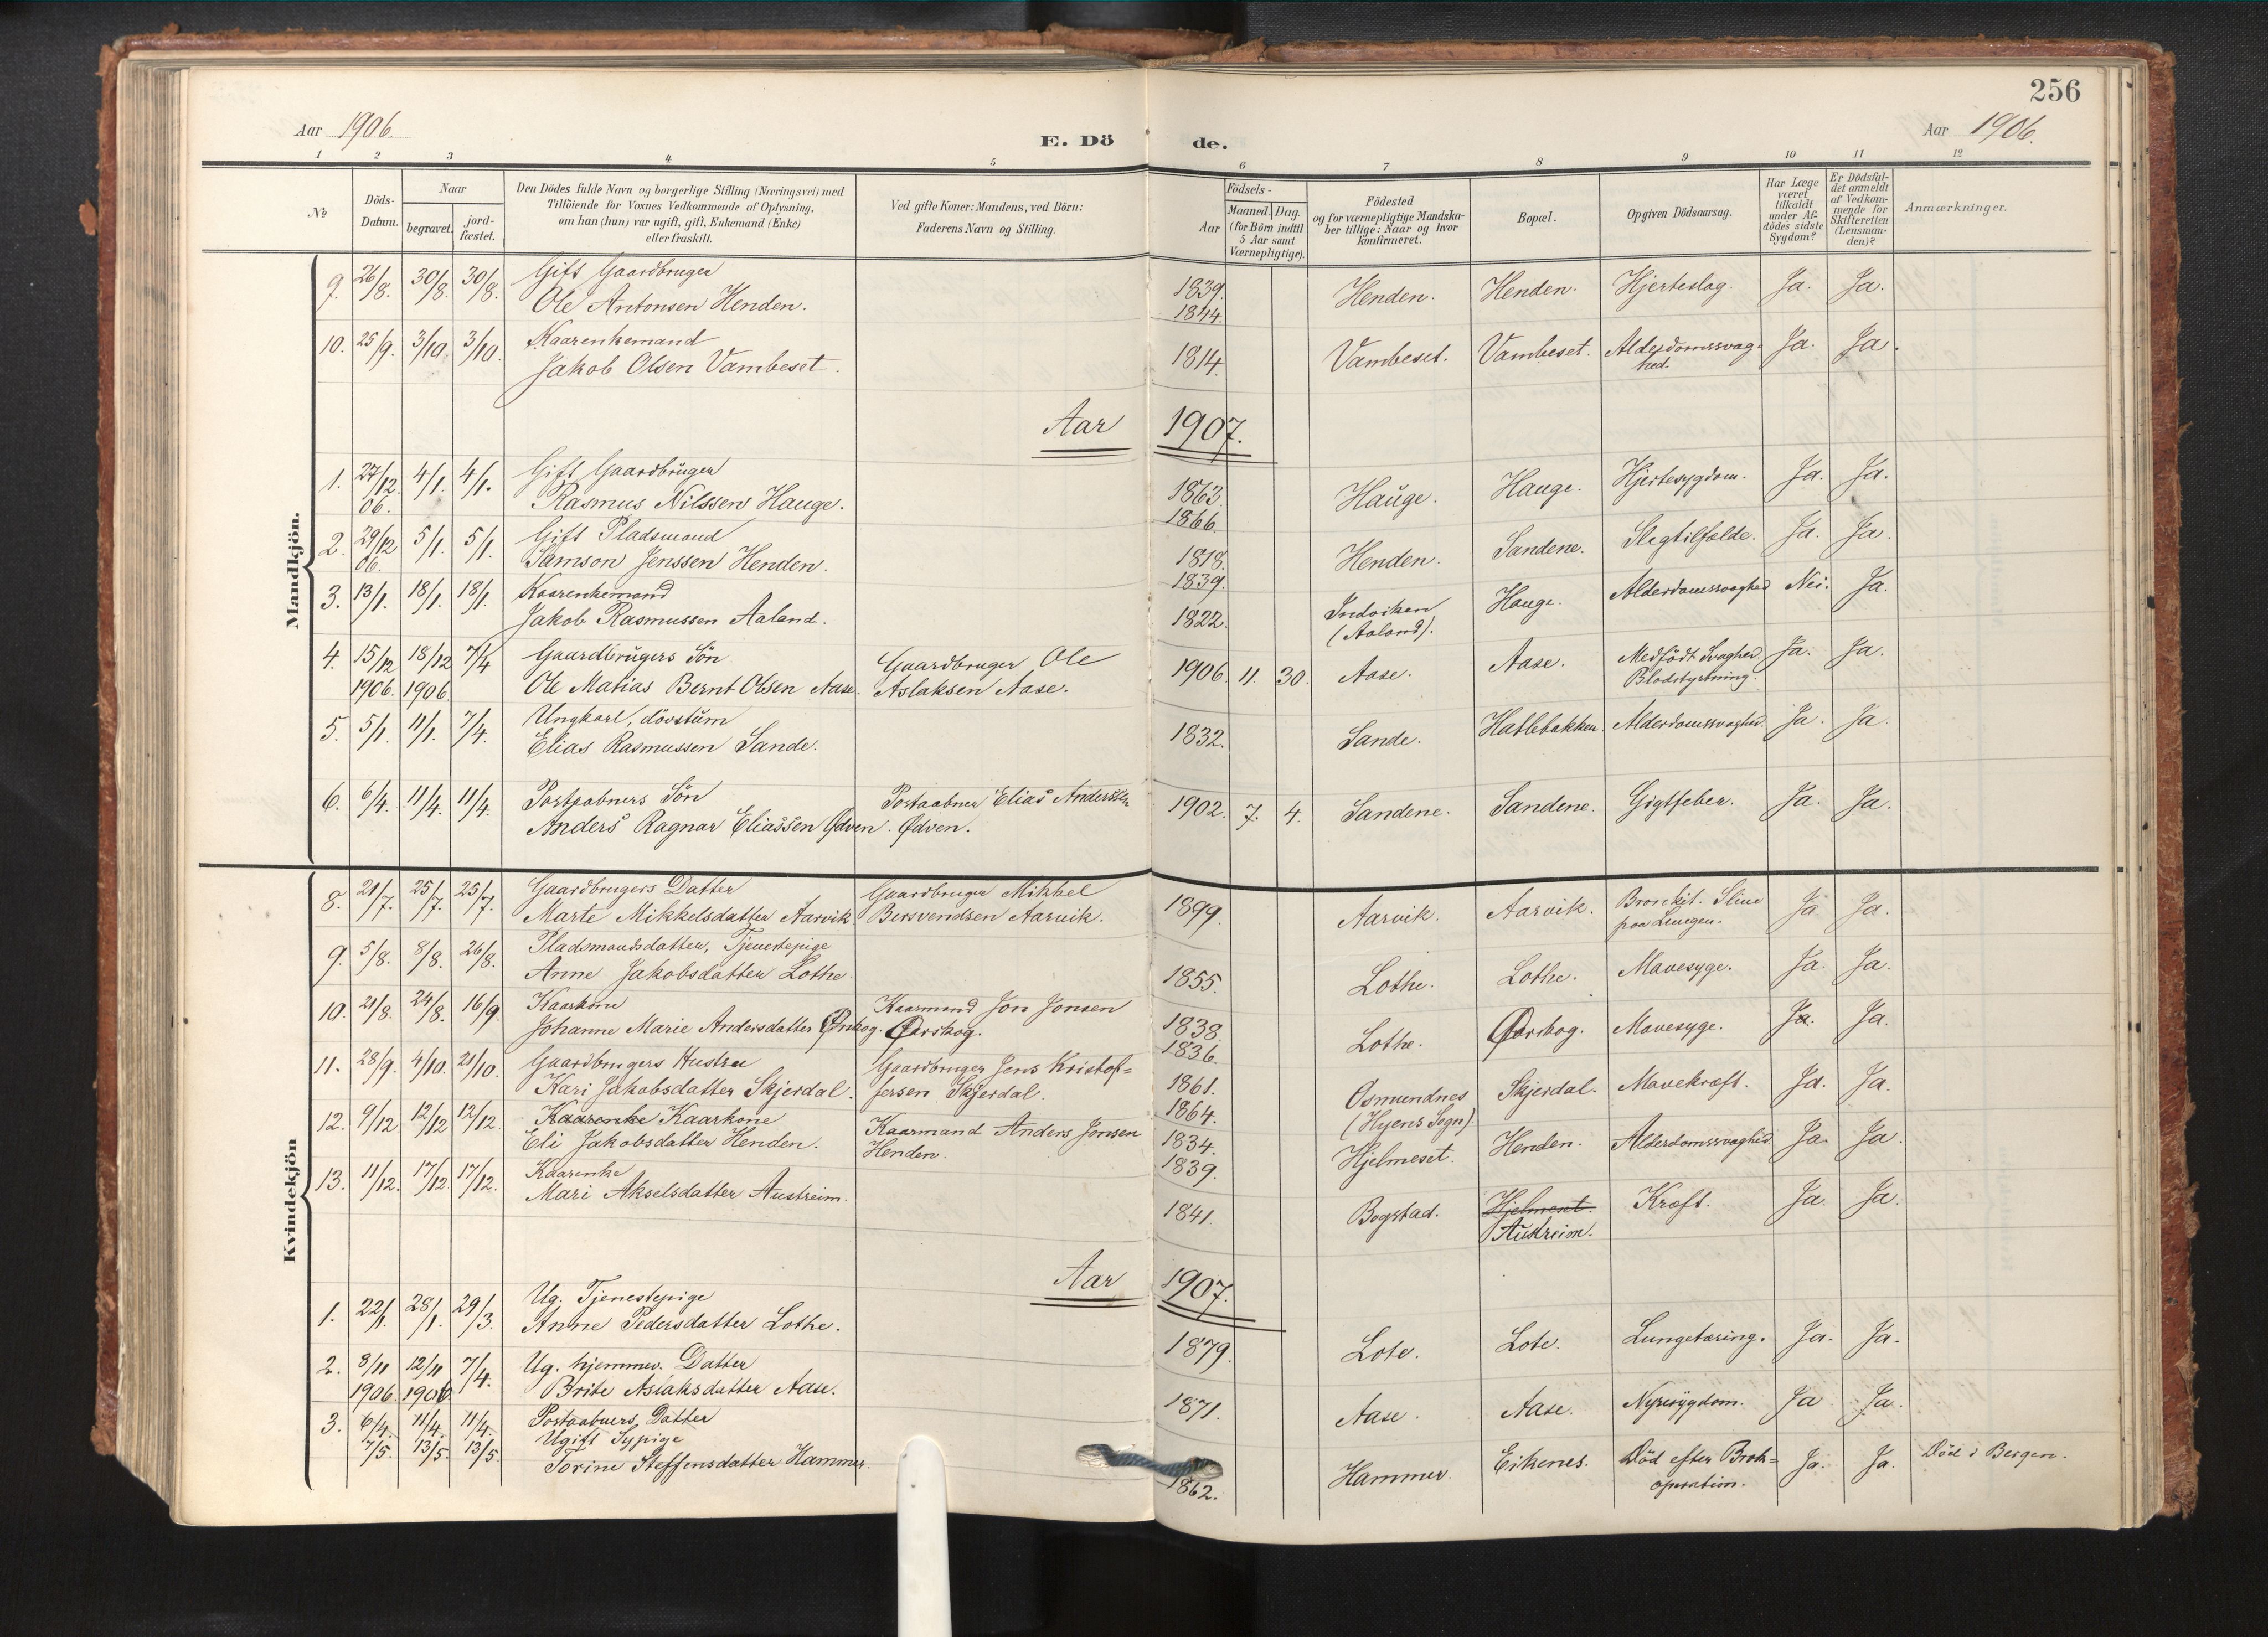 256
Aar 1906.
E. Dö
de.
Aar 1906.
1 2 3 4 5 6 7 8 9 10 11 12
No
Döds-
Datum.
Naar
begravet.
jord-
fæstet.
Den Dödes fulde Navn og borgerlige Stilling (Næringsvei) med
Tilföiende for Voxnes Vedkommende af Oplysning,
om han (hun) var ugift, gift, Enkemand (Enke)
eller fraskilt.
Ved gifte Koner: Mandens, ved Börn:
Faderens Navn og Stilling.
Födsels-
Aar
Maaned. Dag.
(for Börn indtil
5 Aar samt
Værnepligtige).
Födested
og for værnepligtige Mandska-
ber tillige: Naar og hvor
konfirmeret.
Bopæl.
Opgiven Dödsaarsag.
Har Læge
været
tilkaldt
under Af-
dödes sidste
Sygdom?
Er Dödsfal-
det anmeldt
af Vedkom-
mende for
Skifteretten
(Lensman-
den)?
Anmærkninger.
Mandkjön.
9. 26/8. 30/8. 30/8. Gift Gaardbruger
Ole Antonsen Henden. 1839. Henden. Henden. Hjerteslag. Ja. Ja.
1844.
10. 25/9. 3/10. 3/10. Kaarenkemand
Jakob Olsen Vambeset. 1814. Vambeset. Vambeset. Alderdomssvag-
hed. Ja. Ja.
Aar 1907.
1. 27/12 06. 4/1. 4/1. Gift Gaardbruger
Rasmus Nilssen Hauge. 1863. Hauge. Hauge. Hjertesygdom. Ja. Ja.
1866.
2. 29/12 06. 5/1. 5/1. Gift Pladsmand
Samson Jenssen Henden. 1818. Henden. Sandene. Slegtilfælde. Ja. Ja.
1839.
3. 13/1. 18/1. 18/1. Kaarenkemand
Jakob Rasmussen Aaland. 1822. Indviken
(Aaland). Hauge. Alderdomssvaghed Nei. Ja.
4. 15/12 1906. 18/12 1906 7/4 Gaardbrugers Sön
Ole Matias Bernt Olsen Aase. Gaardbruger Ole
Aslaksen Aase. 1906. 11. 30. Aase. Aase. Medfödt Svaghed.
Blodstyrtning. Ja. Ja.
5. 5/1. 11/1. 7/4. Ungkarl, dövstum
Elias Rasmussen Sande. 1832. Sande. Hatlebakken. Alderdomssvaghed. Ja. Ja.
6. 6/4. 11/4. 11/4. Postaabners Sön
Anders Ragnar Eliassen Ødven. Postaabner Elias Anderssen
Ødven. 1902. 7. 4. Sandene. Sandene. Gigtfeber. Ja. Ja.
Kvindekjön
8. 21/7. 25/7. 25/7. Gaardbrugers Datter
Marte Mikkelsdatter Aarvik Gaardbruger Mikkel
Bersvendsen Aarvik. 1899. Aarvik. Aarvik. Bronkit. Slim
paa Lungen. Ja. Ja.
9. 5/8. 8/8. 26/8. Pladsmandsdatter, Tjenestepige
Anne Jakobsdatter Lothe. 1855. Lothe. Lothe. Mavesyge. Ja. Ja.
10. 21/8. 24/8. 16/9. Kaarkone
Johanne Marie Andersdatter Kaarmand Jon Jonsen
Ørskog. 1838. Lothe. Mavesyge. Ja. Ja.
1836.
11. 28/9. 4/10. 21/10. Gaardbrugers Hustru
Kari Jakobsdatter Skjerdal. Gaardbruger Jens Kristof=
fersen Skjerdal. 1861. Osmundnes
(Hyens Sogn) Skjerdal. Mavekræft. Ja. Ja.
1864.
12. 9/12 12/12 12/12. Kaarenke Kaarkone
Eli Jakobsdatter Henden. Kaarmand Anders Jonsen
Henden. 1834. Hjelmeset. Henden. Alderdomssvaghed Ja. Ja.
1839.
13. 11/12. 17/12. 17/12. Kaarenke
Mari Akselsdatter Austreim. 1841. Bogstad. Hjelmeset.
Austreim. Kræft. Ja. Ja.
Aar 1907.
1. 22/1. 28/1. 29/3. Ug. Tjenestepige
Anne Pedersdatter Lothe. 1879. Lote. Lote. Lungetæring. Ja. Ja.
2. 8/11 1906. 12/11 1906 7/4. Ug. hjemmev. Datter
Brite Aslaksdatter Aase. 1871. Aase. Aase. Nyresygdom. Ja Ja.
3. 6/4. 11/4. 11/4. Postaabners Datter
7/5. 13/5. 13/5 Ugift Sypige
Torine Steffensdatter Hammer. 1862. Hammer. Eikenes. Död efter Brok=
operation. Ja. Ja. Död i Bergen.